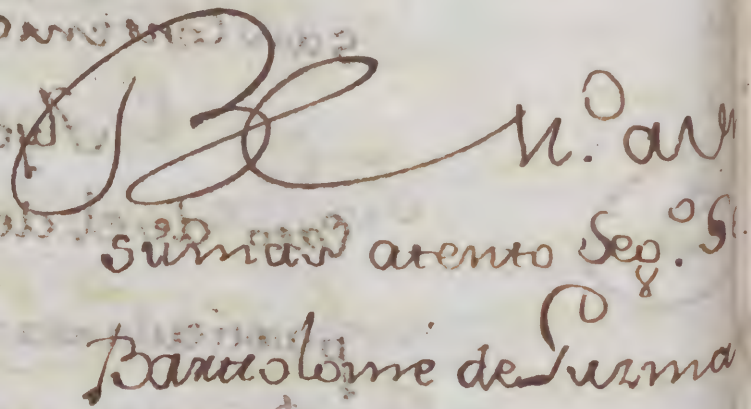 BL M.º a V
su mas atento Seg.º S
Bartolome de Guzma